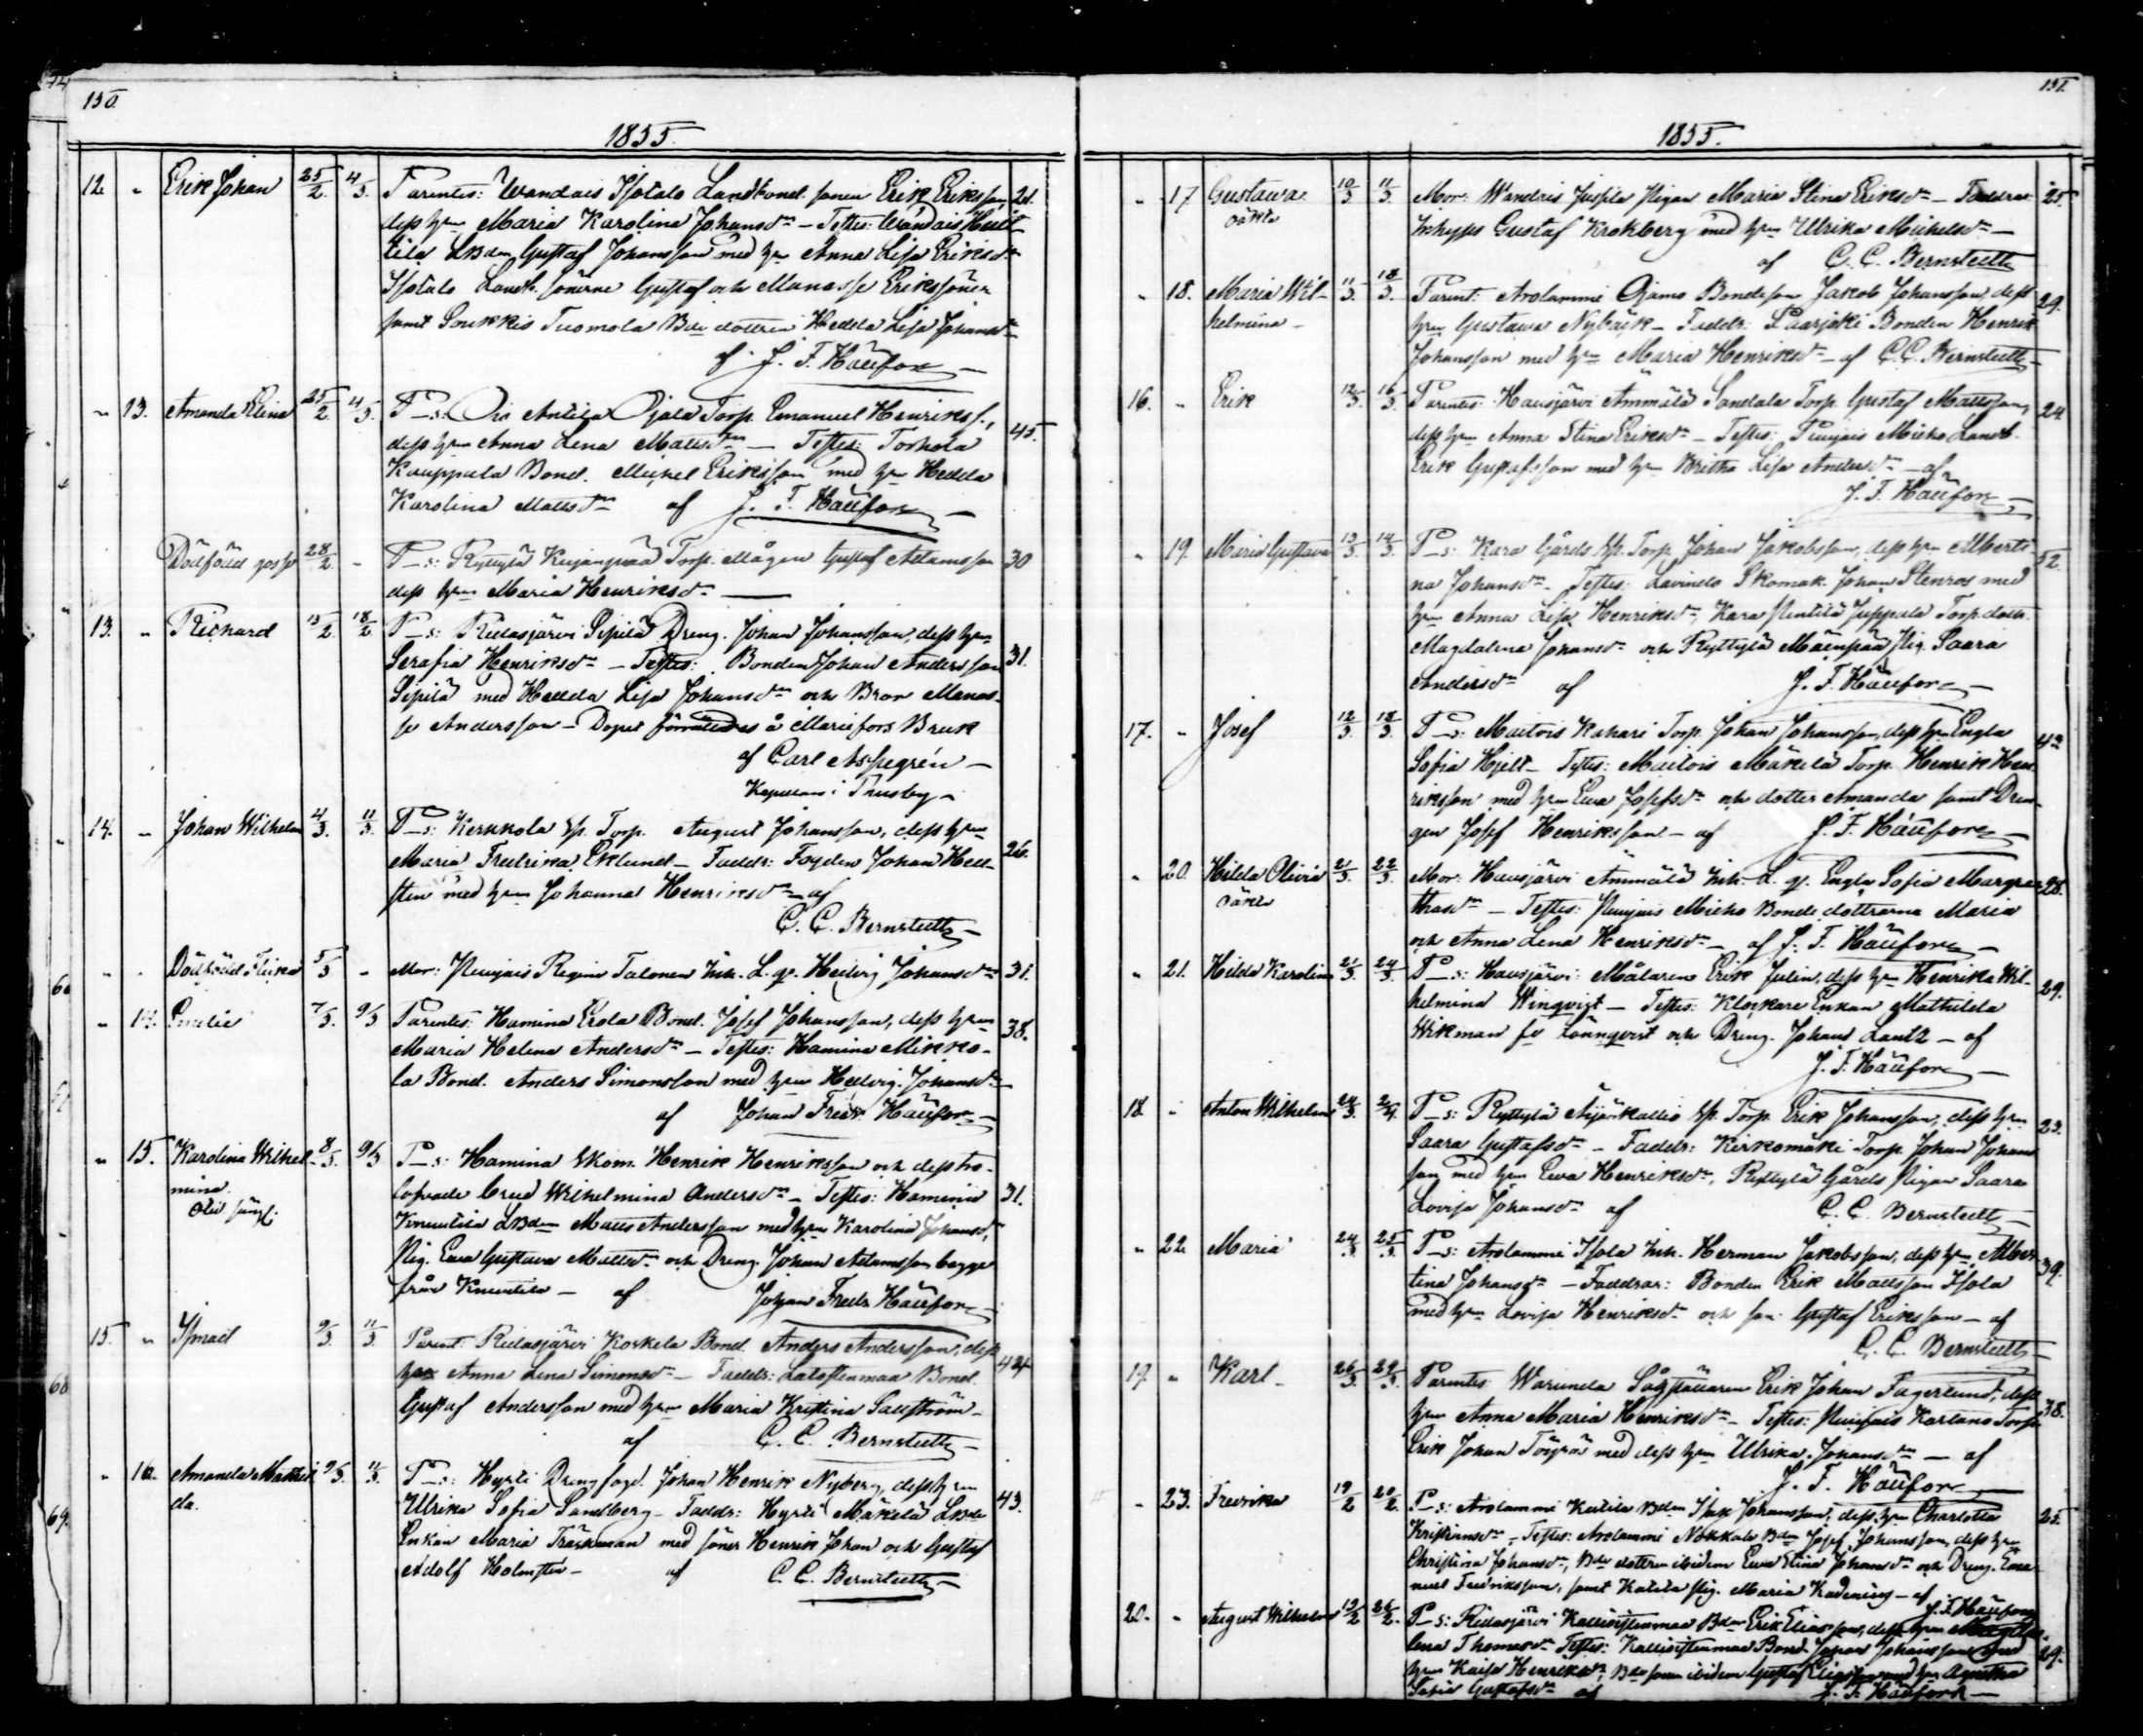 150.
1855.
12 " Erik Johan 25/2 4/3. Parentes: Wandais Isotalo Landbond. sonen Erik Eriksson, 21.
dess hru Maria Karolina Johansdr – Testes: Wandais Heik-
kilä LBden Gustaf Johansson med hu Anna Lisa Eriksdr
Isotalo Landb. sönerne Gustaf och Manasse Erikssöner
samt Soukkis Tuomola Bde dottren Hedda Lisa Johansdr
af J. F. Häufon
" 13. Amanda Elina 25/2 4/3. P_s: Oja Ojala Torp. Emanuel Henrikss.,
dess hru Anna Lena Mattsdr – Testes: Torhola 45.
Kauppala Bond. Mickel Eriksson med hru Hedda
Karolina Mattsdr af J. F. Häufon
Dödfödd gosse 28/2. - P_s: Ryttylä Torp. Mågen Gustaf Adamsson 30
dess hru Maria Henriksdr
13. " Richard 13/2. 18/2 P_s: Ridasjärvi Sipilä Dreng. Johan Johansson, dess hru
Serafia Henriksdr – Testes: Bonden Johan Andersson 31.
Sipilä med Hedda Lisa Johansdr och Bror Manas-
se Andersson – Dopet förrättades å Mariefors Bruk
af Carl Aspegrén –
i Trusby –
14. " Johan Wilhelm 4/3. 11/3. P_s: Kerkkola Sp. Torp. August Johansson, dess hru
Maria Fredrika Eklund – Faddr: Fogden Johan Hell- 26.
sten med hru Johanna Henriksdr – af
C. C. Bernstedt
" - Dödfödd Flicka 5/3 - Mor: Nuijais Talonen Inh. L. qv. Hedvig Johansdr 31.
" 14. Emelie 7/3. 9/3 Parentes: Hamina Erola Bond. Josef Johansson, dess hru
Maria Helena Andersdr – Testes: Hamina Mikko- 38.
la Bond. Anders Simonsson med hru Hedvig Johansdr
af Johan Fredr. Häufon
" 15. Karolina Wilhel- 8/3. 9/3 P_s: Hamina Skom. Henrik Henriksson och dess tro-
mina. lofvade brud Wilhelmina Andersdr – Testes: Hamina 31.
LBden Matts Andersson med hru Karolina Johansdr,
Pig. Ewa Gustava Mattsdr och Dreng Johan Adamsson bägge
från – af Johan Fredr. Häufon
15. " Ismael 9/3 11/3 Parent: Ridasjärvi Koskela Bond. Anders Andersson, dess
hru Anna Lena Simonsdr – Faddr: Latostenmaa Bond. 42
Gustaf Andersson med hru Maria Kristina Sallström –
af C. C. Bernstedt
" 16. Amanda Mathil- 9/3. 11/3. P_s: Hyrli Drengfogd. Johan Henrik Nyberg, dess hru
da. Ulrika Sofia Sandberg – Faddr: Hyrli Mäkelä LBde 43.
Enkan Maria Träskman med söner Henrik Johan och Gustaf
Adolf Holmsten – af C. C. Bernstedt
151.
1855.
" 17 Gustawa 10/3 11/3. Mor: Wandais Jussila Pigan Maria Stina Eriksdr – Faddrar 25.
oäkta Inhyses Gustaf Krokberg med hru Ulrika Michelsdr –
af C. C. Bernstedt
" 18. Maria Wil- 11/3. 18/3. Parent: Arolammi Ojamo Bondeson Jakob Johansson, dess 29.
helmina – hru Gustava Nybäck – Faddr: Paarjoki Bonden Henrik
Johansson med hru Maria Henriksdr – af C. C. Bernstedt
16. " Erik 12/3. 16/3. Parentes: Hausjärvi Ämmälä Sandala Torp. Gustaf Mattsson, 24
dess hru Anna Stina Eriksdr – Testes: Nuijais Micko Landb.
Erik Gustafsson med hru Britha Lisa Andersdr – af
J. F. Häufon
" 19. Maria Gustava 13/3. 14/3. P_s: Kara Gårds Sp. Torp. Johan Jakobsson, dess hru Alberti- 32.
na Johansdr – Testes: Lavinda Skomak. Johan Stenros med
hru Anna Lisa Henriksdr, Kara Anttila Juppala Torp. dottr.
Magdalena Johansdr och Ryttylä Mäenpää Pig. Saara
Andersdr af J. F. Häufon
17. " Josef 12/3. 18/3. P_s: Maitois Kahari Torp. Johan Johansson, dess hru Engla 43
Sofia Hjelt – Testes: Maitois Mäkelä Torp. Henrik Hen-
riksson med hru Ewa Josefsdr och dotter Amanda samt Dren-
gen Josef Henriksson – af J. F. Häufon
" 20. Hilda Olivia 21/3. 22/3. Mor: Hausjärvi Ämmälä Inh. L. qv. Engla Sofia Margare- 28.
oäkta thasdr – Testes: Nuijais Micko Bonde döttrarna Maria
och Anna Lena Henriksdr – af J. F. Häufon
" 21. Hilda Karolina 21/3. 24/3 P_s: Hausjärvi Målaren Erik Julin, dess hru Henrika Wil- 29.
helmina Winqvist – Testes: Klockare Enkan Mathilda
Wikman fö Lönnqvist och Dreng. Johan Lantz – af
J. F. Häufon
18. " Anton Wilhelm 24/3. 2/4. P_s: Ryttylä Sp. Torp. Erik Johansson, dess hru 23.
Saara Gustafsdr – Faddr: Kirkomäki Torp. Johan Johans-
son med hru Ewa Henriksdr, Ryttylä Gårds Pigan Saara
Lovisa Johansdr af C. C. Bernstedt
" 22. Maria 24/3 25/3. P_s: Arolammi Isola Inh. Herman Jakobsson, dess hru Alber- 39.
tina Johansdr – Faddrar: Bonden Erik Mattsson Isola
med hru Lovisa Henriksdr och son Gustaf Eriksson – af
C. C. Bernstedt
19. " Karl – 26/3. 29/3. Parentes: Warunda Erik Johan Fagerlund, dess 38.
hru Anna Maria Henriksdr – Testes: Nuijais Karlano Torp.
Erik Johan med dess hru Ulrika Johansdr – af
J. F. Häufon
" 23. Fredrika 19/2 20/2. P_s: Arolammi Kutila Bden Isak Johansson, dess hru Charlotta 25.
Kristiansdr – Testes: Arolammi Nokkala Bden Josef Johansson, dess hru
Christina Johansdr, Bde dottren ibidem Ewa Stina Johansdr och Dreng. Ema-
nuel Fredriksson, samt Pig. Maria – af
J. F. Häufon
20. " August Wilhelm 19/2 26/2. P_s: Ridasjärvi Bden Erik Eliasson, dess hru
lena Thomasdr Testes: Bond. Johan Johansson med 29.
hru Kaisa Henriksdr, Bde sonen ibidem Gustaf Eliasson med hru Agnetha
Sofia Gustafsdr af J. F. Häufon